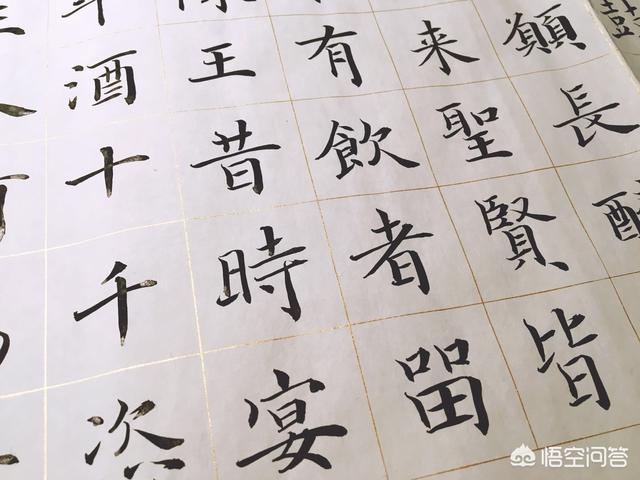 願長
来聖賢皆
有飲者留
王昔時宴
酒十千恣
悟空问答